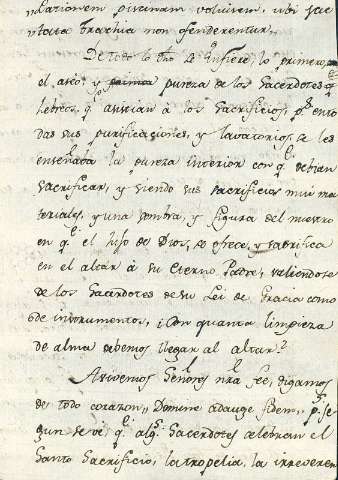 dationem piscinam voluissem, ubi sae
De todo lo dho se infiere, lo primero,
el aseo, y pureza de los Sacerdotes
hebreos qe asistian à los Sacrificios, ps en to
das sus purificaciones, y lavatorios, se les
enseñaba la pureza interior con qe debian
sacrificar, y siendo sus sacrificios mui ma
teriales, y una sombra, y figura del nuestro
en qe el Hijo de Dios, se ofrece, y sacrifica
en el altar à su Eterno Padre, valiendose
de los Sacerdotes de su Lei de Gracia como
de instrumentos, ¿Con quanta limpieza
de alma debemos llegar al altar?
Avivemos Señores nra fee, digamos
de todo corazon,, Domine adauge fidem,, ps se
gun se vé, qe algs Sacerdotes celebran el
Santo Sacrificio, la tropelia, la irreveren